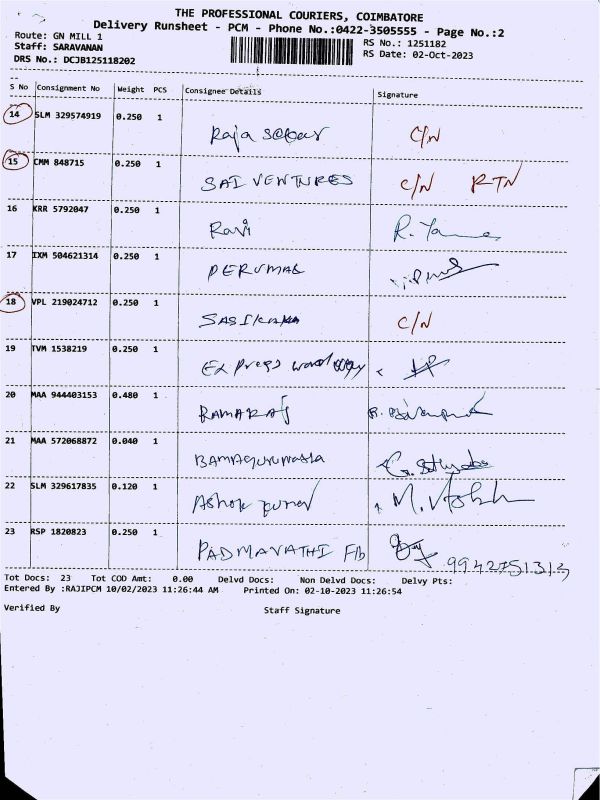 THE PROFESSIONAL COURIERS, COIMBATORE
Delivery Runsheet - PCM - Phone No.:0422-3505555 - Page No.:2
Route: GN MILL 1
RS No.: 1251182
Staff: SARAVANAN
RS Date: 02-Oct-2023
DRS No.: DCJB125118202
S No Consignment No Weight PCS Consignee Details Signature
14 SLM 329574919 0.250 1
Raja C/N
15 CMM 848715 0.250 1
SAI VENTURES C/N RTN
16 KRR 5792047 0.250 1
Ravi R.
17 IXM 504621314 0.250 1
PERUMAL
18 VPL 219024712 0.250 1
SASIKALA C/N
19 TVM 1538219 0.250 1
Express
20 MAA 944403153 0.480 1
RAMARAJ
21 MAA 572068872 0.040 1
22 SLM 329617835 0.120 1
Ashok kumar M.
23 RSP 1820823 0.250 1
PADMAVATHI Flb
9942751313
Tot Docs: 23 Tot COD Amt: 0.00 Delvd Docs: Non Delvd Docs: Delvy Pts:
Entered By :RAJIPCM 10/02/2023 11:26:44 AM Printed On: 02-10-2023 11:26:54
Verified By Staff Signature